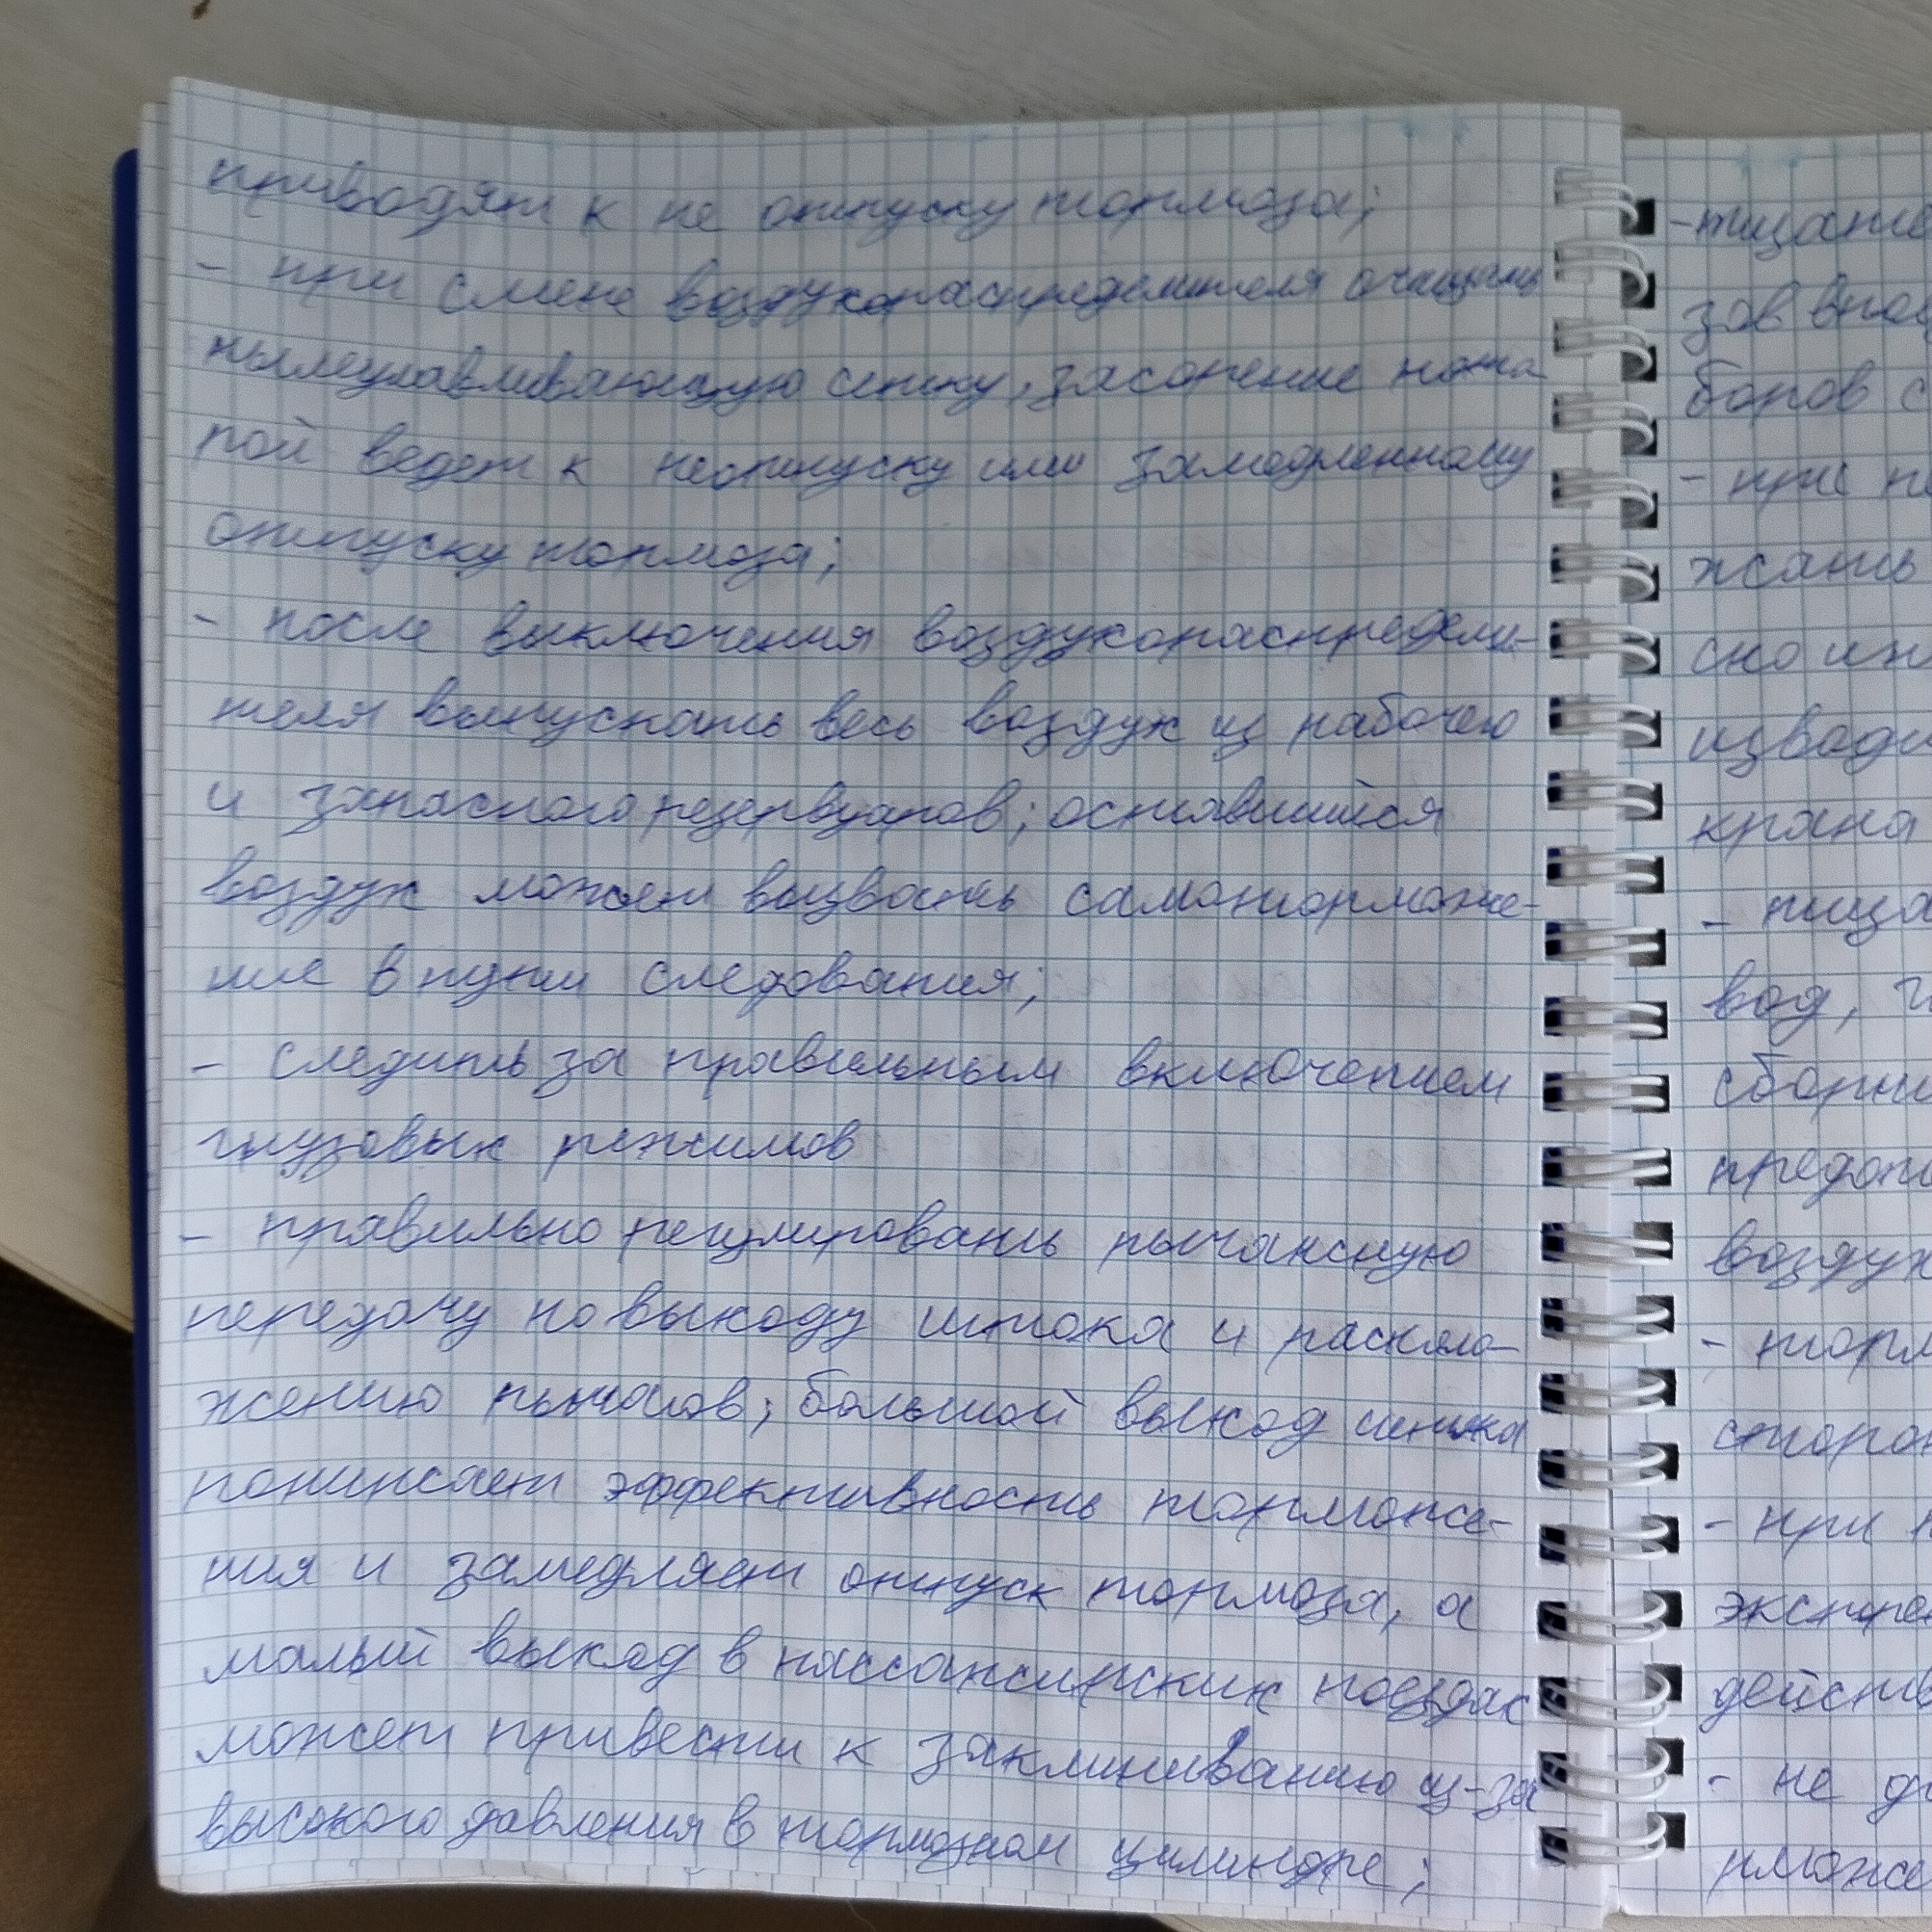 приводят к не отпуску тормоза;
- при смене воздухораспределителя очищать
пылеулавливающую сетку, засорение кото
рой ведет к неотпуску или замедленному
отпуску тормоза;
- после выключения воздухораспредели-
теля выпускать весь воздух из рабочего
и запасного резервуаров; оставшийся
воздух может вызвать самоторможе-
ние в пути следования;
- следить за правильным включением
грузовых режимов
- правильно регулировать рычажную
передачу по выходу штока и располо-
жению рычагов; большой выход штока
понижает эффективность торможе-
ния и замедляет отпуск тормоза, а
малый выход в пассажирских поездах
может привести к заклиниванию из-за
высокого давления в тормозном цилиндре;
-тщате
зов
боров с
- при
жать
ско
изводи
крана
вод,
сборни
предот
воздух
- торм
сторон
- при
экспре
действ
- не
рможе